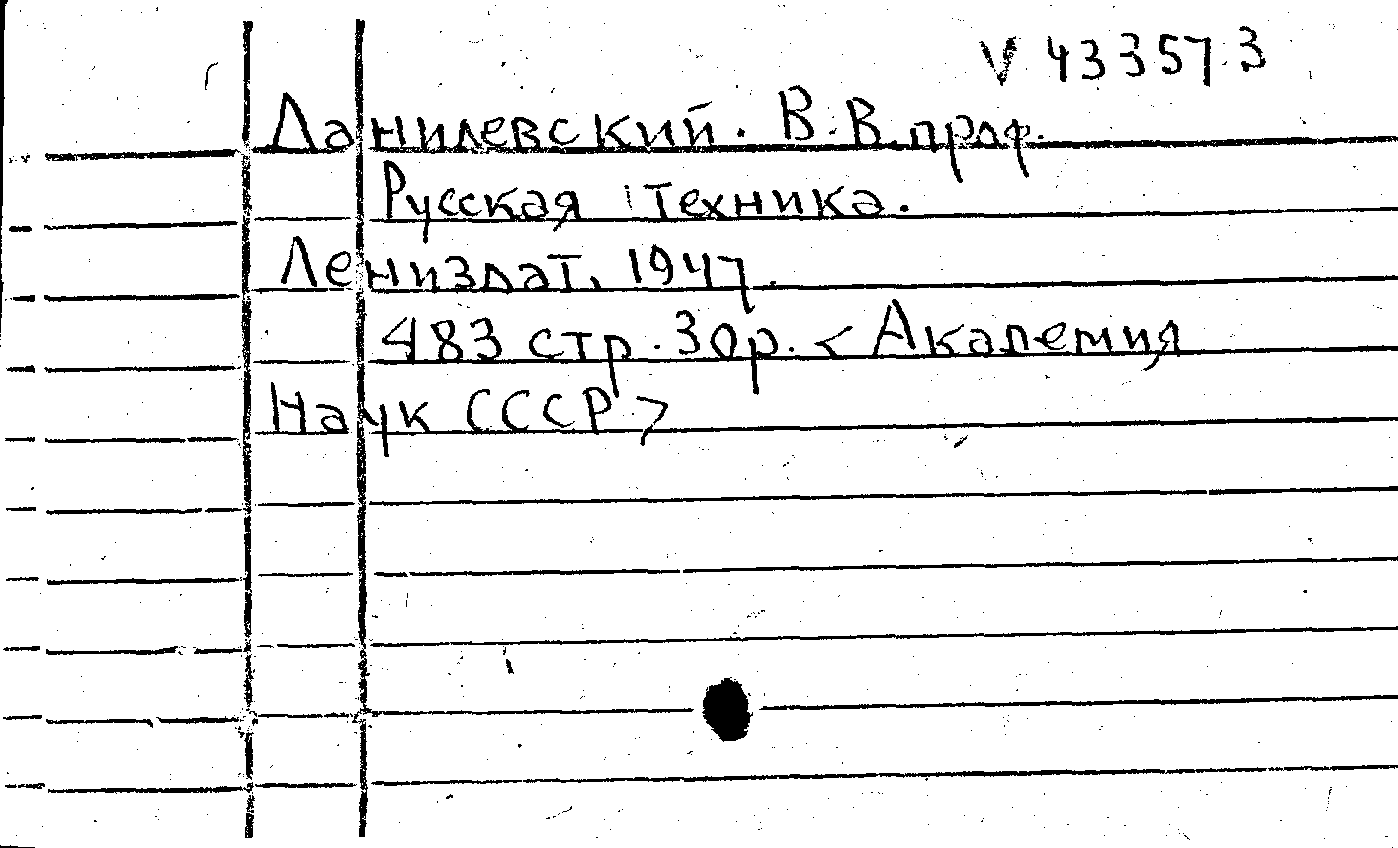 V 433573
Данилевский. В. В. проф.
Русская техника.
Лениздат, 1947.
483 стр. 30р. < Академия
Наук СССР >